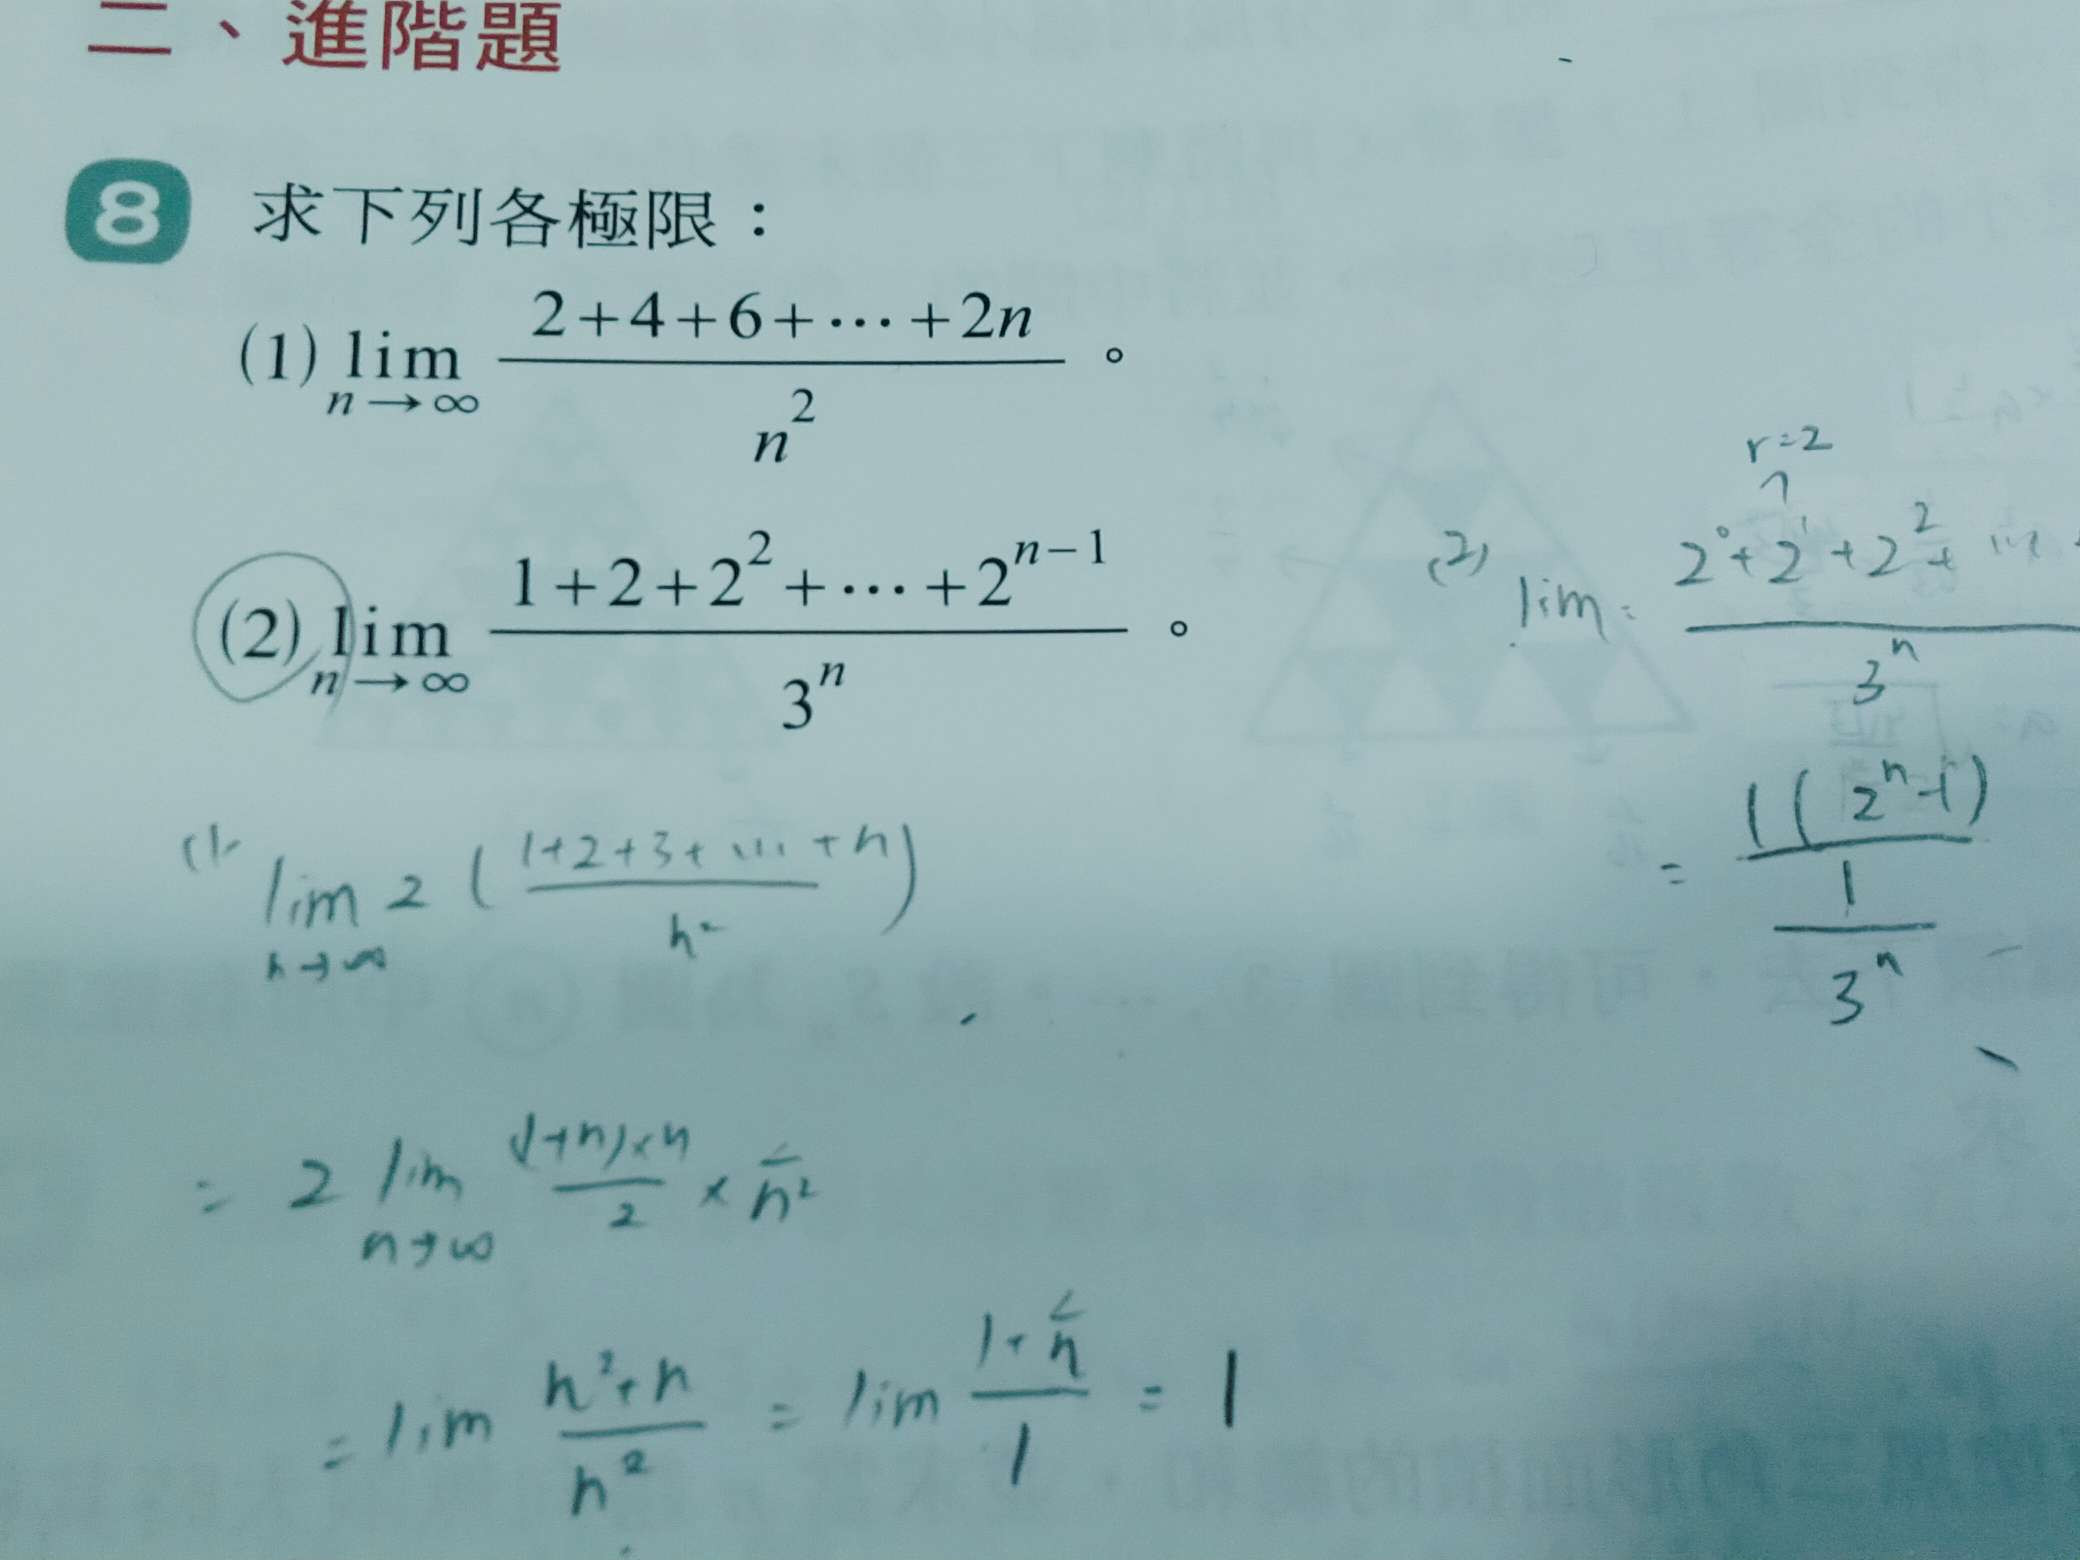 二、進階題
8 求下列各極限：
(1) lim n→∞ (2+4+6+⋯+2n)/n²。
(2) lim n→∞ (1+2+2²+⋯+2ⁿ⁻¹)/3ⁿ。
(1) lim n→∞ 2 ( (1+2+3+⋯+n)/n² )
= 2 lim n→∞ ((1+n)×n)/2 × 1/n²
= lim (n²+n)/n² = lim (1+1/n)/1 = 1
r=2
(2) lim = (2⁰+2¹+2²+⋯)/3ⁿ
= (1(2ⁿ-1)/1)/3ⁿ